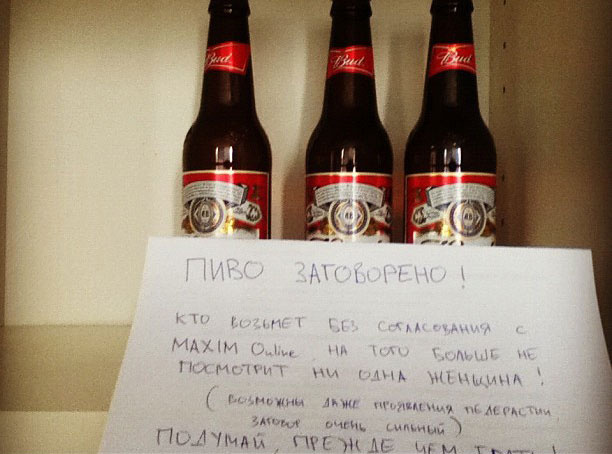 Bud Bud Bud
ПИВО ЗАГОВОРЕНО!
КТО ВОЗЬМЕТ БЕЗ СОГЛАСОВАНИЯ С
MAXIM Online, НА ТОГО БОЛЬШЕ НЕ
ПОСМОТРИТ НИ ОДНА ЖЕНЩИНА!
(ВОЗМОЖНЫ ДАЖЕ ПРОЯВЛЕНИЯ ПЕДЕРАСТИИ,
ЗАГОВОР ОЧЕНЬ СИЛЬНЫЙ)
ПОДУМАЙ, ПРЕЖДЕ ЧЕМ